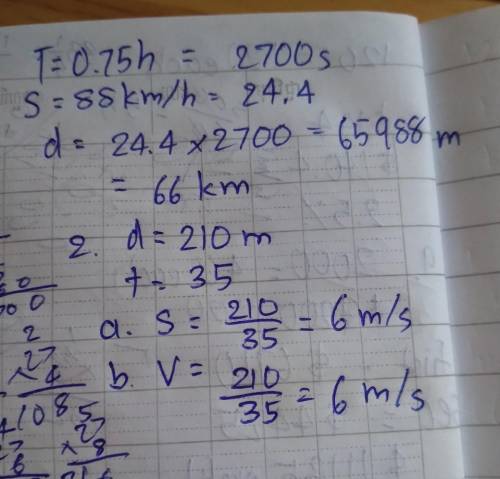 T = 0.75h = 2700s
S = 88 km/h = 24.4
d = 24.4 × 2700 = 65988 m
= 66 km
2. d = 210 m
t = 35
a. S = 210/35 = 6 m/s
b. V = 210/35 = 6 m/s
2
27
× 4
108
27
× 8